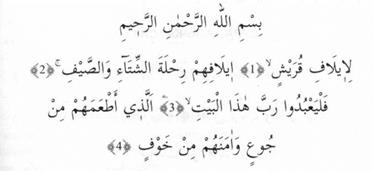 بِسْمِ اللّٰهِ الرَّحْمٰنِ الرَّحٖيمِ
لِاٖيلَافِ قُرَيْشٍۙ ﴿1﴾ اٖيلَافِهِمْ رِحْلَةَ الشِّتَٓاءِ وَالصَّيْفِۚ ﴿2﴾
فَلْيَعْبُدُوا رَبَّ هٰذَا الْبَيْتِۙ ﴿3﴾ اَلَّذٖٓي اَطْعَمَهُمْ مِنْ
جُوعٍ وَاٰمَنَهُمْ مِنْ خَوْفٍ ﴿4﴾